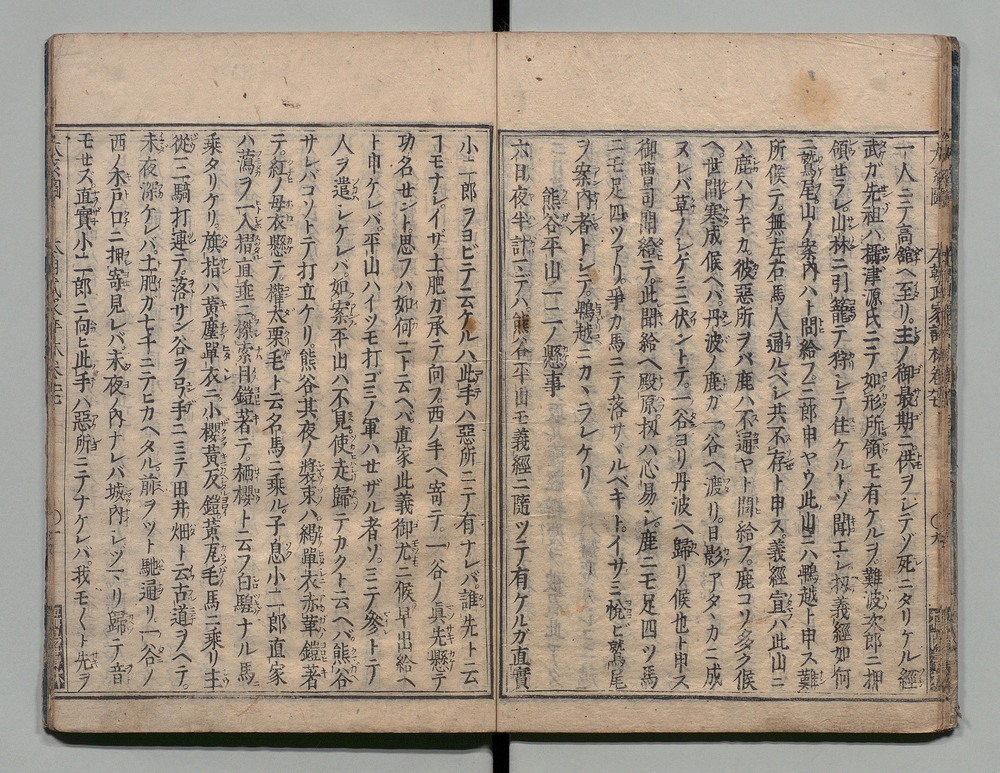 一人ニテ高舘ヘ至リ主ノ御最期ニ供ヲシテゾ死ニタリケル經
武ガ先祖ハ攝津源氏ニテ如形所領モ有ケルヲ難波次郎ニ押
領セラレ山林ニ引籠テ狩シテ住ケルトゾ聞エレ扨義經如何
ニ鷲尾山ノ案内ハト問給フ三郎申ヤウ此山ニハ鵯越ト申ス
所候テ無左右馬人通ルベシ共不存ト申ス義經宜ハ此山ニ
ハ鹿ハナキカ彼惡所ヲバ鹿ハ不通ヤト問給フ鹿コソ多ク候
ヘ世間寒成候ヘバ丹波ノ鹿ガ一谷ヘ渡リ日影アタヽカニ成
ヌレバ草ノシゲミニ伏ントテ一谷ヨリ丹波ヘ歸リ候也ト申ス
御曹司聞給テ此聞給ヘ殿原扨ハ心易シ鹿ニモ足四ツ馬
ニモ足四ツアリ爭カ馬ニテ落サヾルベキトイサミ悅ヒ鷲尾
ヲ案內者トシテ鵯越ニカヽラレケリ
熊谷平山一二ノ懸事
六日夜半計マデハ熊谷平山モ義經ニ隨ツテ有ケルガ直實
小二郎ヲヨビテ云ケルハ此手ハ惡所ニテ有ナレバ誰先ト云
コモナシイザ土肥ガ承テ向フ西ノ手ヘ寄テ一谷ノ眞先懸テ
功名セント思フハ如何ニト云ヘバ直家此義御尤ニ候早出給ヘ
ト申ケレバ平山ハイツモ打ゴミノ軍ハセザル者ソミテ參トテ
人ヲ遣シケレバ如案平山ハ不見使走歸テカクト云ヘバ熊谷
サレバコソトテ打立ケリ熊谷其夜ノ裝束ハ褐單衣赤革鎧著
テ紅ノ母衣懸テ權太栗毛ト云名馬ニ乘ル子息小二郎直家
ハ蕩ヲ一入摺直垂ニ樕索目鎧著テ栖櫻ト云フ白騜ナル馬
乘タリケリ旗指ハ黃塵單衣ニ小櫻黃反鎧黃瓦毛馬ニ乘リ主
從三騎打連テ落サン谷ヲ弓手ニミテ田井畑ト云古道ヲヘテ
未夜深ケレバ土肥ガ七千ニテヒカヘタル前ヲツト馳通リ一谷ノ
西ノ木戸口ニ押寄見レバ未夜ノ內ナレバ城內シヅマリ歸テ音
モセス直實小二郎ニ向ヒ此手ハ惡所ニテナケレバ我モ〱ト先ヲ